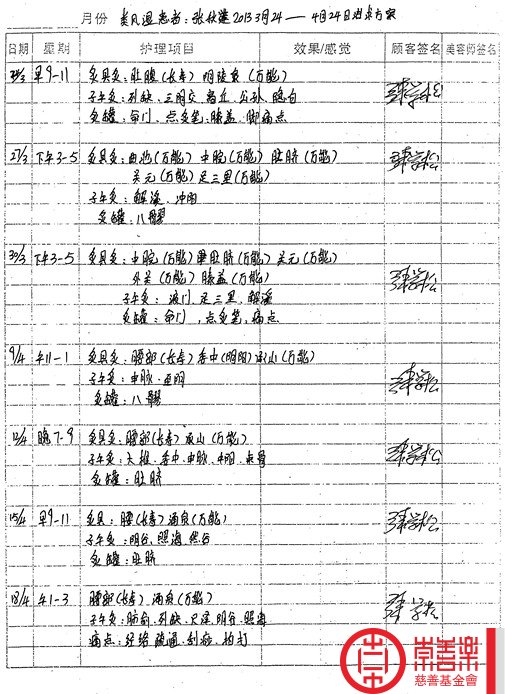 月份 类风湿患者：张 2013 3月24——4月24日
日期 星期 护理项目 效果/感觉 顾客签名 美容师签名
早9-11 灸具灸：肚腹(长寿) 阴陵泉(万能)
子午灸：列缺、三阴交、商丘、公孙、隐白
灸罐：命门、点灸笔：膝盖、脚痛点
27/3 下午3-5 灸具灸：曲池(万能) 中脘(万能) 肚脐(万能)
关元(万能) 足三里(万能)
子午灸：解溪、冲阳
灸罐：八髎
30/3 下午3-5 灸具灸：中脘(万能) 肚脐(万能) 关元(万能)
外关(万能) 膝盖(万能)
子午灸：液门、足三里、解溪
灸罐：命门、点灸笔、痛点
9/4 午11-1 灸具灸：腰部(长寿) 委中(阴阳) 承山(万能)
子午灸：申脉、
灸罐：八髎
12/4 晚7-9 灸具灸：腰部(长寿) 承山(万能)
子午灸：大椎、委中、申脉、京骨
灸罐：肚脐
15/4 早9-11 灸具：腰(长寿) 涌泉(万能)
子午灸：阴谷、照海、然谷
灸罐：肚脐
18/4 午1-3 腰部(长寿) 涌泉(万能)
子午灸：肺俞、列缺、尺泽、阴谷、照海
痛点：经络疏通、刮痧、拍打
崇善樂
慈善基金會